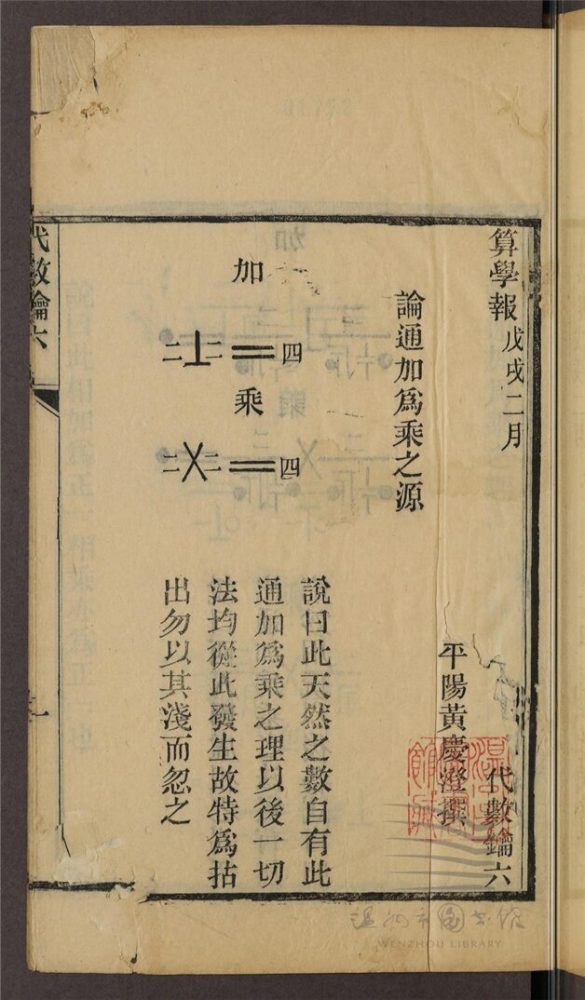 算學報 戊戌二月 代數鑰六
平陽黃慶澄撰
論通加爲乘之源
加
二⊥二＝四
乘
二×二＝四
說曰此天然之數自有此
通加爲乘之理以後一切
法均從此發生故特爲拈
出勿以其淺而忽之
代數鑰六
一
WENZHOU LIBRARY